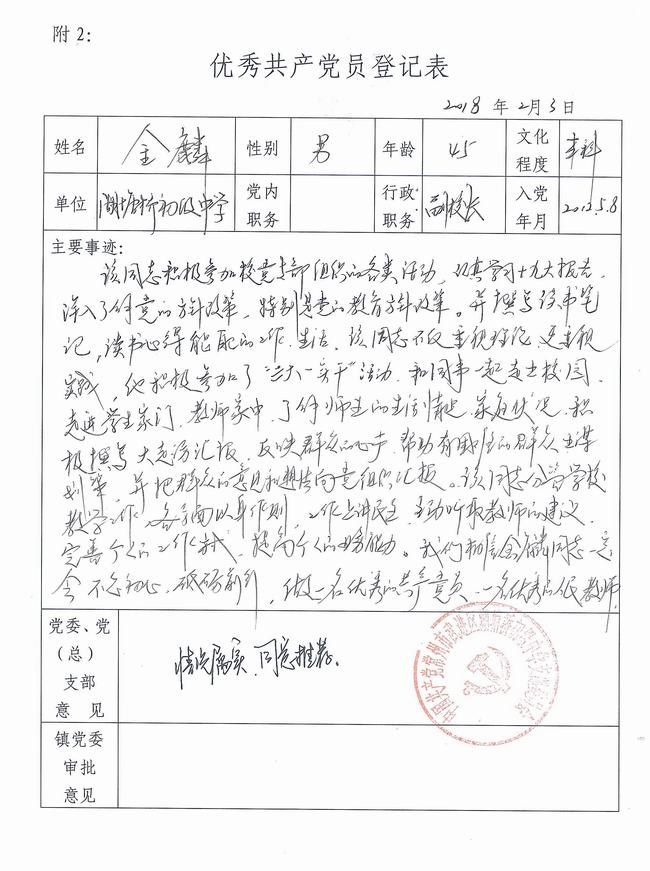 附 2：
优秀共产党员登记表
2018 年 2月 3 日
姓名 金麟 性别 男 年龄 45 文化程度 本科
单位 湖塘桥初级中学 党内职务 行政职务 副校长 入党年月 2012.5.8
主要事迹：
该同志积极参加校党支部组织的各类活动，认真学习十九大报告，
深入了解党的方针政策，特别是党的教育方针政策。并撰写读书笔
记，读书心得能配的工作、生活。该同志不仅重视理论，更重视
实践，他积极参加了“三大一实干”活动，和同事一起走出校园，
走进学生家门、教师家中，了解师生的生活情况、家庭状况，积
极撰写大走访汇报，反映群众的心声，帮助有困难的群众出谋
划策，并把群众的意见和热情向党组织汇报。该同志分管学校
教学工作，各方面以身作则，工作上讲民主，主动听取教师的建议，
完善个人的工作，提高个人的业务能力。我们相信金麟同志一定
会不忘初心，砥砺前行，做一名优秀的共产党员，一名优秀的人民教师。
党委、党
（总）
支部
意 见
情况属实，同意推荐。
中国共产党常州市武进区湖塘桥初级中学支部委员会
镇党委
审批
意见